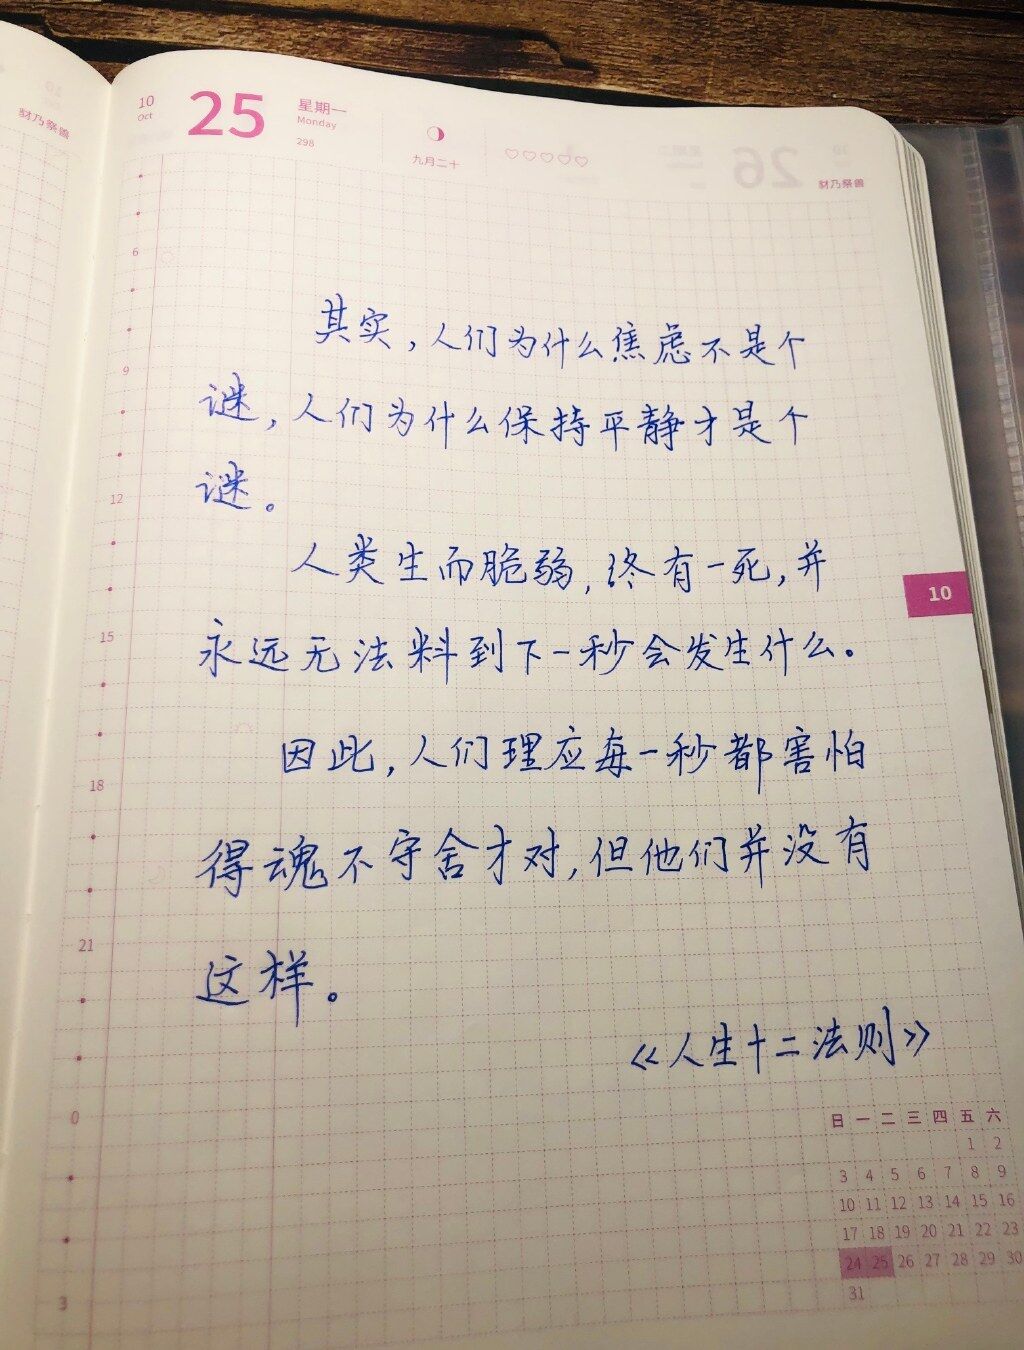 財乃祭兽
10
Oct
25
星期一
Monday
298
九月二十
財乃祭兽
6
9
12
15
18
21
0
3
其实，人们为什么焦虑不是个
谜，人们为什么保持平静才是个
谜。
人类生而脆弱，终有一死，并
永远无法料到下一秒会发生什么。
因此，人们理应每一秒都害怕
得魂不守舍才对，但他们并没有
这样。
《人生十二法则》
10
日 一 二 三 四 五 六
1 2
3 4 5 6 7 8 9
10 11 12 13 14 15 16
17 18 19 20 21 22 23
24 25 26 27 28 29 30
31